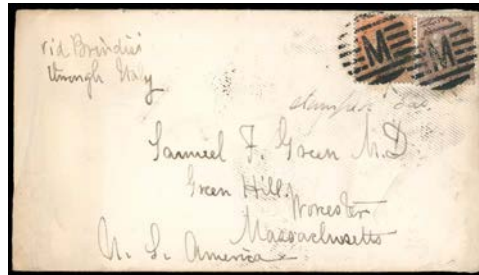 via Brindisi
through Italy
M M
Samuel F. Green M.D
Green Hill.
Worcester
Massachusetts
U. S. America